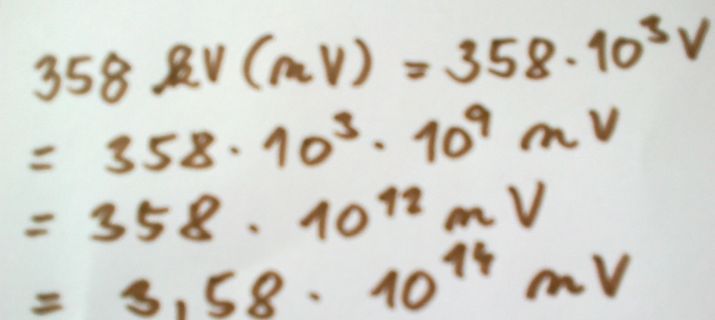 358 kV (nV) = 358 · 10³ V
= 358 · 10³ · 10⁹ nV
= 358 · 10¹² nV
= 3,58 · 10¹⁴ nV